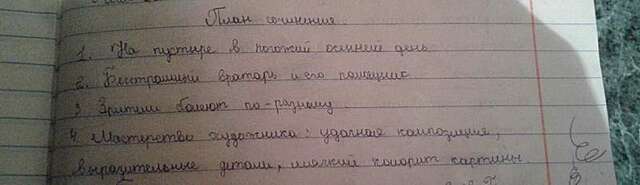 План сочинение.
1. На пустыре в погожий осенней день
2. Бесстрашный вратарь и его помощник
3 Зрители болеют по-разному
4 Мастерство художника: удачная композиция,
выразительные детали, мягкий колорит картины